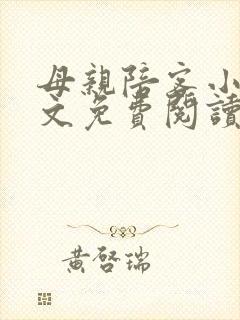 母親陪客小
文免費閱讀
黃啓瑞